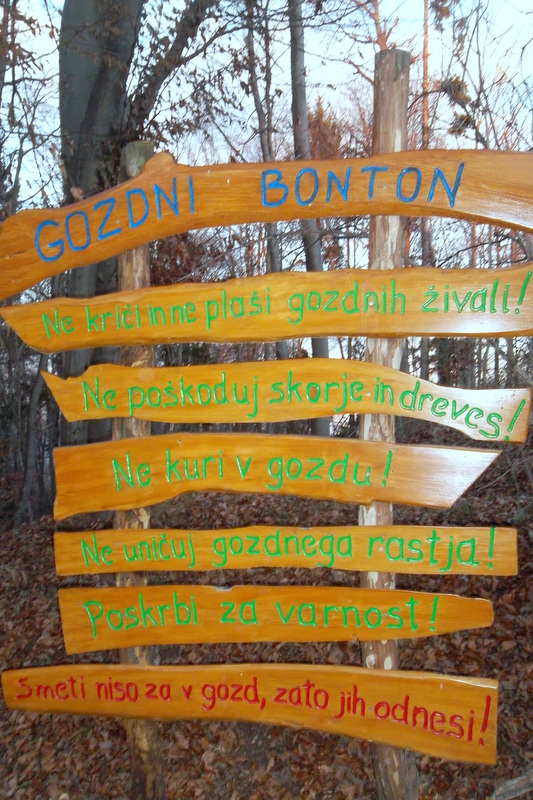 GOZDNI BONTON
Ne kriči in ne plaši gozdnih živali!
Ne poškoduj skorje in dreves!
Ne kuri v gozdu!
Ne uničuj gozdnega rastja!
Poskrbi za varnost!
Smeti niso za v gozd, zato jih odnesi!